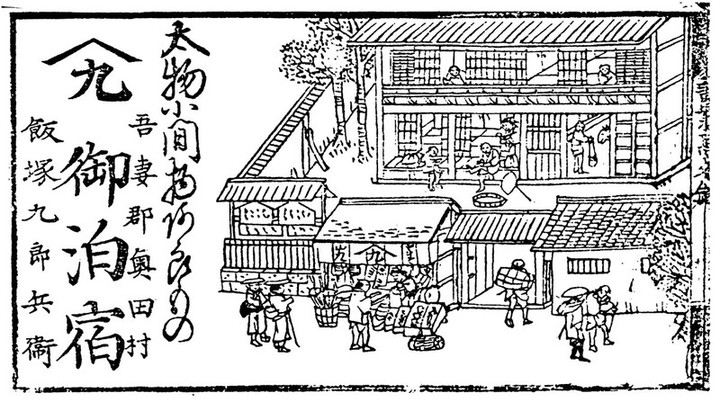 太物小間物阿良もの
吾妻郡奥田村
九
御泊宿
飯塚九郎兵衞
九